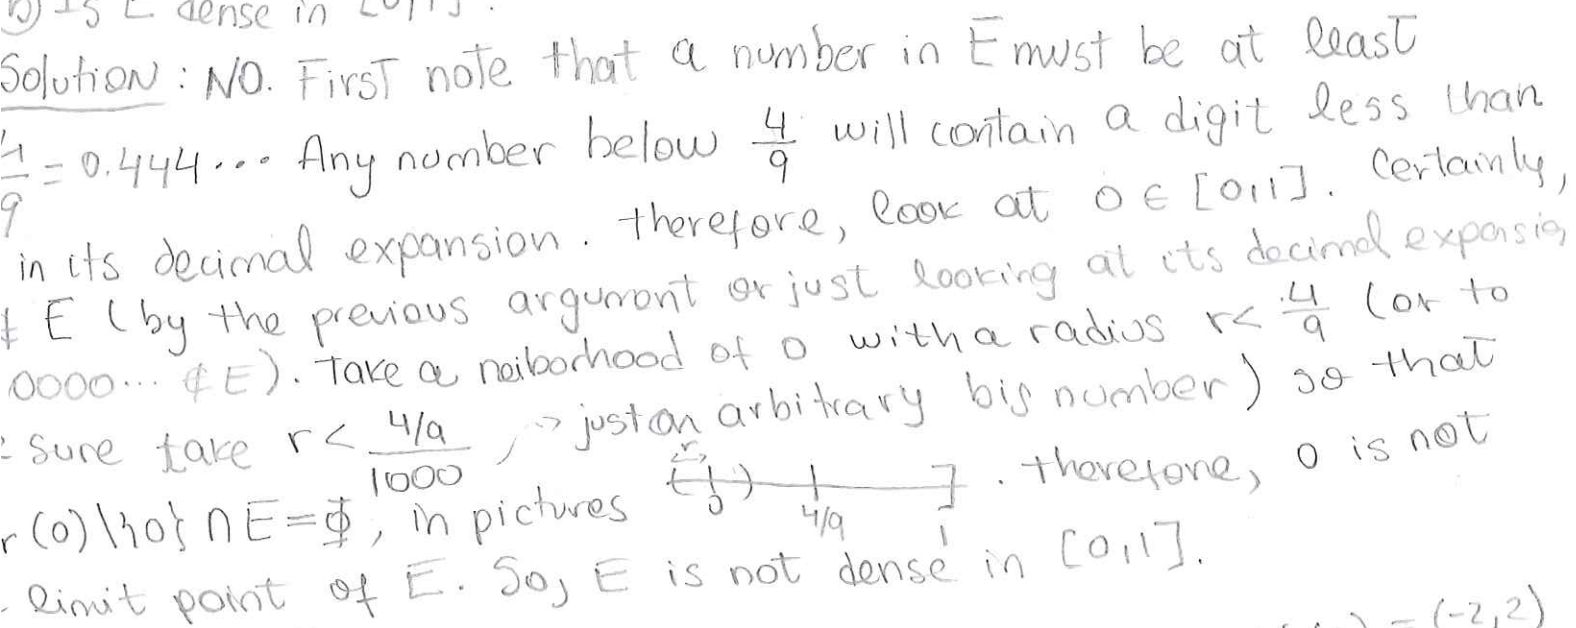 b) Is E dense in [0,1].
Solution: NO. First note that a number in E must be at least
4/9 = 0.444... Any number below 4/9 will contain a digit less than
in its decimal expansion. therefore, look at 0 ∈ [0,1]. Certainly,
∉ E (by the previous argument or just looking at its decimal expansion
0000... ∉ E). Take a neiborhood of 0 with a radius r< 4/9 (or to
sure take r< 4/9 / 1000 , → just an arbitrary big number) so that
r (0)\{0} ∩ E = Φ, in pictures r 0 4/9 1 . therefore, 0 is not
limit point of E. So, E is not dense in [0,1].
= (-2,2)